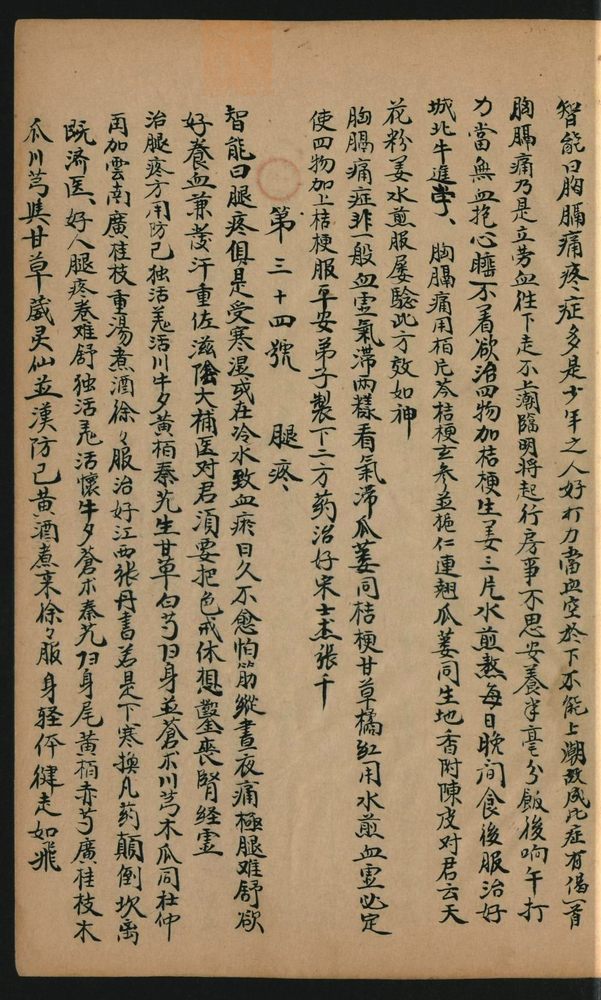 智能曰胸膈痛疼症多是少年之人好打力當血空於下不能上潮故成此症有偈一首
胸膈痛乃是立勞血往下走不上潮臨明將起行房事不思安養半毫分飯後晌午打
力當無血抱心睡不着欲治四物加桔梗生姜三片水煎熬每日晚间食後服治好
城北牛進孝、胸膈痛用栢片芩桔梗玄参並梔仁連翹瓜蒌同生地香附陳皮对君云天
花粉姜水煎服屡驗此方效如神
胸膈痛症非一般血虚氣滞兩樣看氣滞瓜蒌同桔梗甘草橘红用水煎血虚必定
使四物加上桔梗服平安弟子製下二方药治好宋士杰張千
第三十四號 腿疼
智能曰腿疼俱是受寒濕或在冷水致血瘀日久不愈怕筋縱晝夜痛極腿难舒欲
好養血兼發汗重佐滋陰大補医对君須要把色戒休想鑿喪腎经虚
治腿疼方用防己独活羌活川牛夕黄栢秦艽生甘草白芍归身並蒼朮川芎木瓜同杜仲
再加雲南廣桂枝重湯煮酒徐々服治好江西張丹書若是下寒換凡药顛倒坎离
既濟医、好人腿疼卷难舒独活羌活懷牛夕蒼朮秦艽归身尾黄栢赤芍廣桂枝木
瓜川芎與甘草葳灵仙並漢防己黄酒煮来徐々服身轻体健走如飛